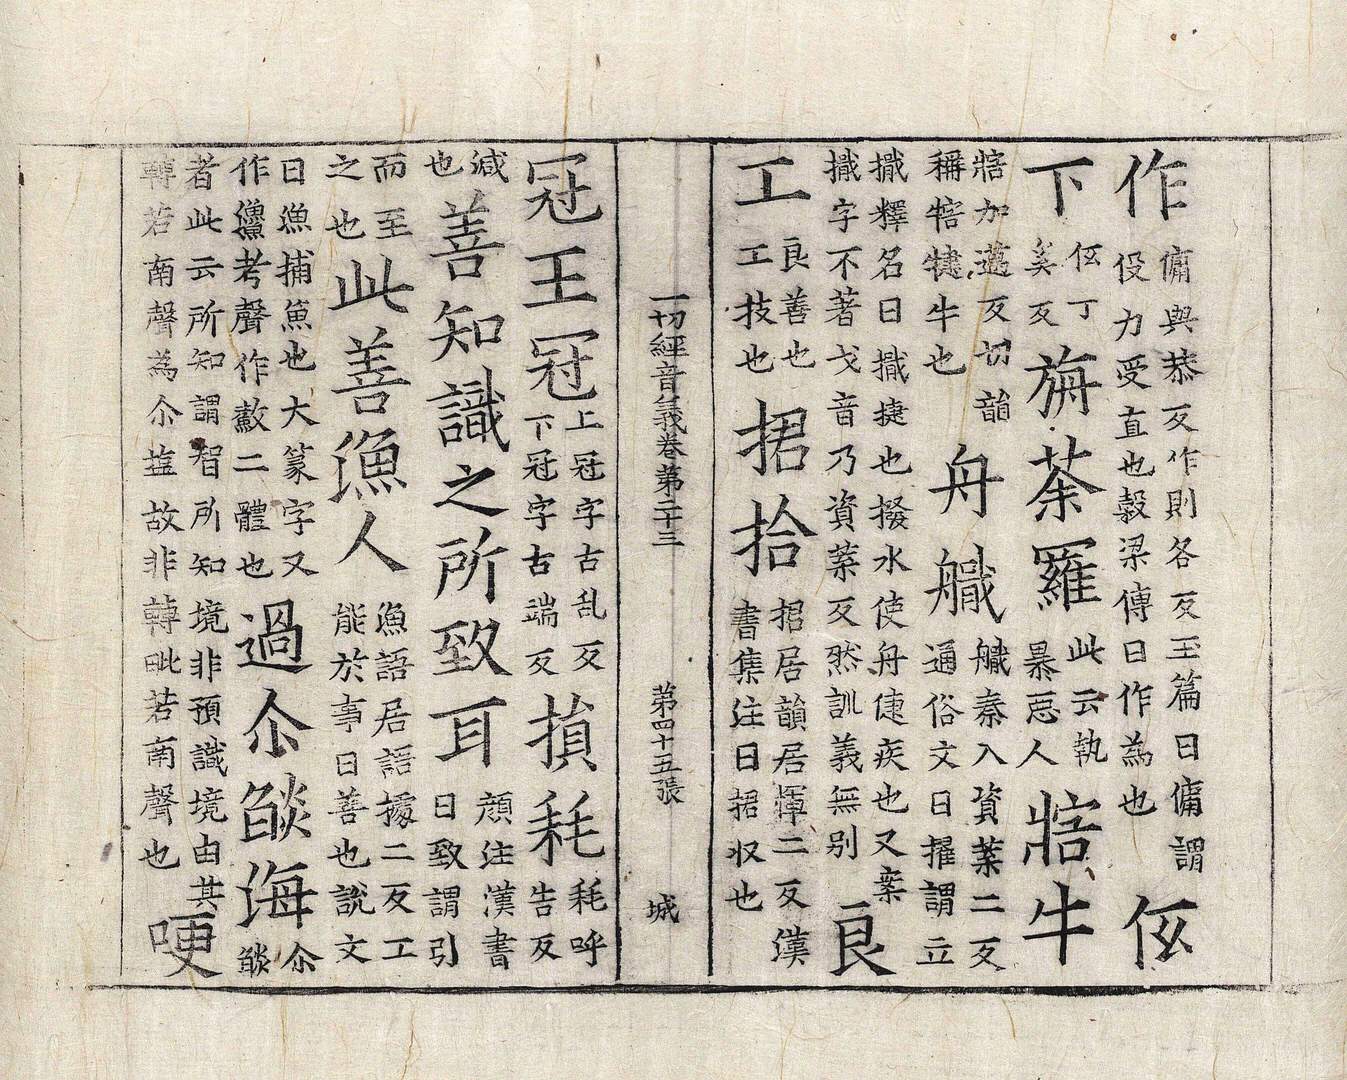 作傭與恭反作則各反玉篇曰傭謂役力受直也穀梁傳曰作為也仾
下仾丁奚反旃荼羅此云執暴惡人㹌牛
㹌加邁反切韻稱㹌犍牛也舟艥艥秦入資葉二反通俗文曰擢謂立
擑釋名曰擑捷也撥水使舟倢疾也又案擑字不著戈音乃資葉反然訓義無別良
工良善也工技也捃拾捃居韻居二反漢書集注曰捃収也
一切經音義卷第二十三 第四十五張 城
冠王冠上冠字古乱反下冠字古端反損耗耗呼告反
減也善知識之所致耳顔注漢書曰致謂引
而至之也此善漁人漁語居語據二反工能於事曰善也說文
曰漁捕魚也大篆字又作䲣考聲作𢿢二體也過尒燄海尒燄
者此云所知謂智所知境非預識境由其轉若南聲為尒塩故非轉毗若南聲也哽